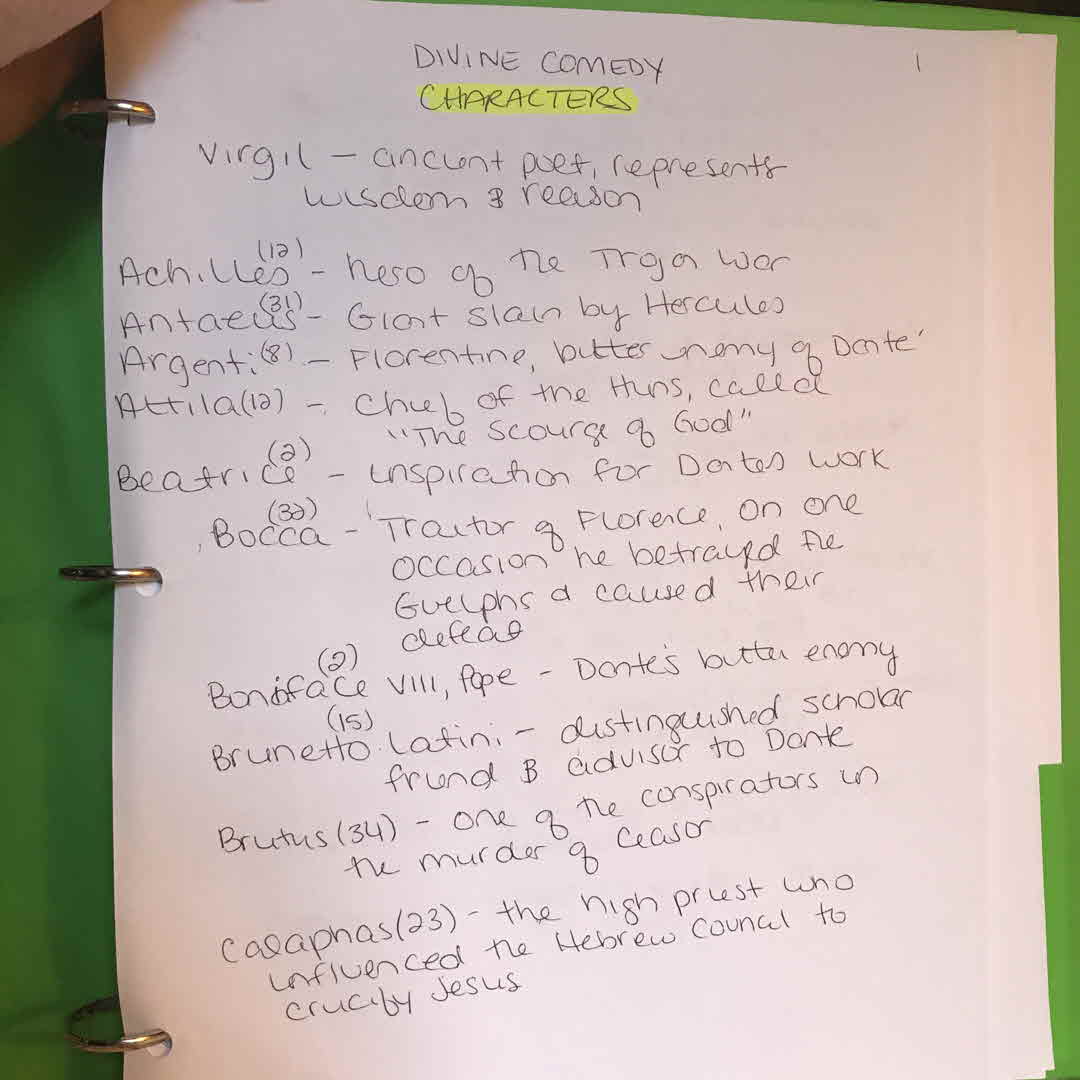 DIVINE COMEDY
1
CHARACTERS
Virgil – ancient poet, represents
wisdom & reason
(12)
Achilles – hero of the Trojan War
(31)
Antaeus – Giant slain by Hercules
Argenti (8) – Florentine, bitter enemy of Dante"
Attila (12) – Chief of the Huns, called
"The Scourge of God"
(2)
Beatrice – inspiration for Dantes work
(32)
Bocca – Traitor of Florence, on one
occasion he betrayed the
Guelphs & caused their
defeat
(2)
Boniface VIII, Pope – Dante's bitter enemy
(15)
Brunetto Latini – distinguished scholar
friend & advisor to Dante
Brutus (34) – one of the conspirators in
the murder of Ceasor
Caiaphas (23) – the high priest who
influenced the Hebrew Council to
crucify Jesus